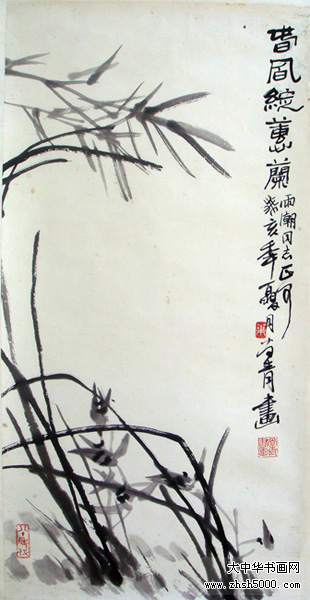 春風綻蕙蘭
雨潮同志正
癸亥年夏月
青畫
大中华书画网
www.zhch5000.com